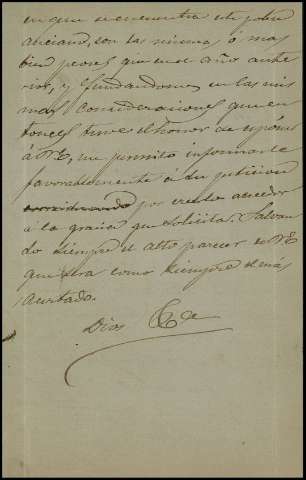 en que se encuentra este pobre
anciano, son las mismas ó mas
bien peores que en el año ante
rior, y fundandome en las mis
mas consideraciones que en
tonces tuve el honor de esponer
á VE, me permito informarle
favorablemente á su peticion
considerando por creerlo acreedor
á la gracia que solicita. Salvan
do siempre el alto parecer de VE
que será como siempre el mas
acertado.
Dios &a